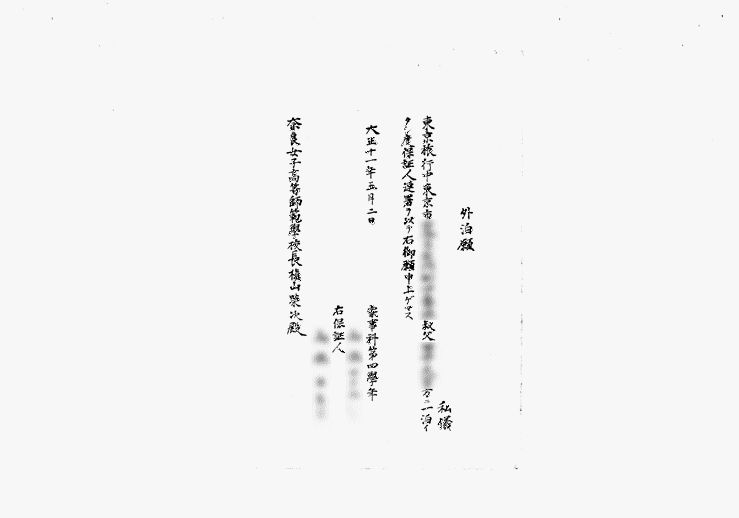 外泊願
私儀
東京旅行中東京市 叔父 方ニ一泊イ
タシ度保証人連署ヲ以テ右御願申上ゲマス
大正十一年五月二日
家事科第四學年
右保証人
奈良女子高等師範學校長槇山榮次殿